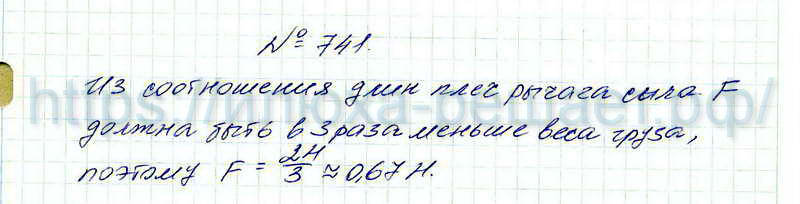 № 741.
Из соотношения длин плеч рычага сила F
должна быть в 3 раза меньше веса груза,
поэтому F = 2Н/3 ≈ 0,67 Н.